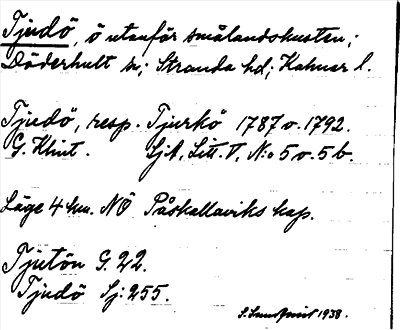 Tjudö, ö utanför smålandskusten;
Döderhult sn; Stranda hd; Kalmar l.
Tjudö, resp. Tjurkö 1787 o. 1792.
G. Klint. Sjk, Litt. V, N:o 5 o. 5 b.
Läge 4 km. NÖ Påskallaviks kap.
Tjutön G. 22.
Tjudö Sj: 255.
1938.